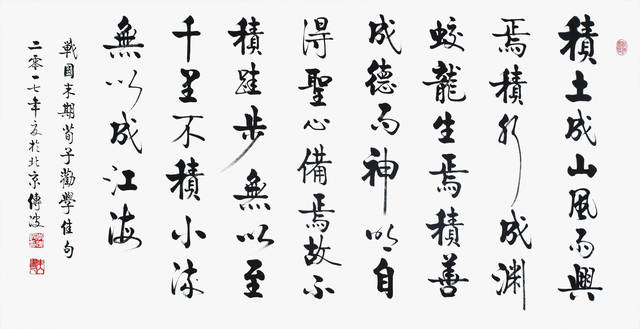 積土成山風雨興
焉積水成渊
蛟龍生焉積善
成德而神明自
得聖心備焉故不
積跬步無以至
千里不積小流
無以成江海
戰國末期荀子勸學佳句
二零一七年夏於北京傳波